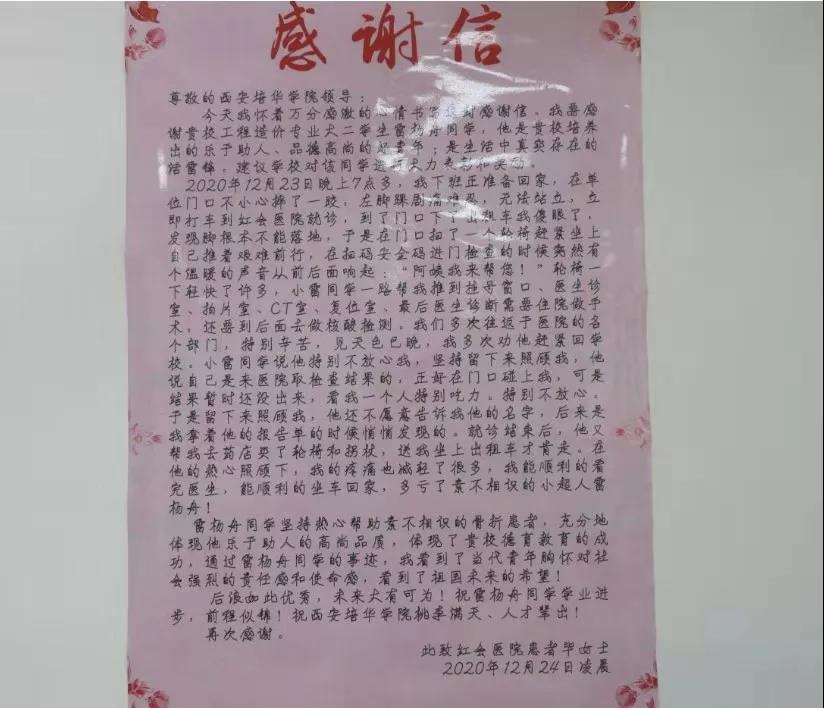 感谢信
尊敬的西安培华学院领导：
今天我怀着万分感激的心情书写这封感谢信。我要感
谢贵校工程造价专业大二学生雷杨舟同学，他是贵校培养
出的乐于助人、品德高尚的好青年；是生活中真实存在的
活雷锋。建议学校对该同学进行大力表彰和奖励。
2020年12月23日晚上7点多，我下班正准备回家，在单
位门口不小心摔了一跤，左脚踝剧痛难忍，无法站立，立
即打车到红会医院就诊，到了门口下了出租车我傻眼了，
发现脚根本不能落地，于是在门口扫了一个轮椅赶紧坐上
自己推着艰难前行，在扫码安全码进门检查的时候突然有
个温暖的声音从前后面响起："阿姨我来帮您！"轮椅一
下轻快了许多，小雷同学一路帮我推到挂号窗口、医生诊
室、拍片室、CT室、复位室、最后医生诊断需要住院做手
术，还要到后面去做核酸检测。我们多次往返于医院的各
个部门，特别辛苦，见天色已晚，我多次劝他赶紧回学
校。小雷同学说他特别不放心我，坚持留下来照顾我，他
说自己是来医院取检查结果的，正好在门口碰上我，可是
结果暂时还没出来，看我一个人特别吃力。特别不放心。
于是留下来照顾我，他还不愿意告诉我他的名字，后来是
我拿着他的报告单的时候悄悄发现的。就诊结束后，他又
帮我去药店买了轮椅和拐杖，送我坐上出租车才肯走。在
他的热心照顾下，我的疼痛也减轻了很多，我能顺利的看
完医生，能顺利的坐车回家，多亏了素不相识的小超人雷
杨舟！
雷杨舟同学坚持热心帮助素不相识的骨折患者，充分地
体现他乐于助人的高尚品质，体现了贵校德育教育的成
功，通过雷杨舟同学的事迹，我看到了当代青年胸怀对社
会强烈的责任感和使命感，看到了祖国未来的希望！
后浪如此优秀，未来大有可为！祝雷杨舟同学学业进
步，前程似锦！祝西安培华学院桃李满天、人才辈出！
再次感谢。
此致红会医院患者毕女士
2020年12月24日凌晨